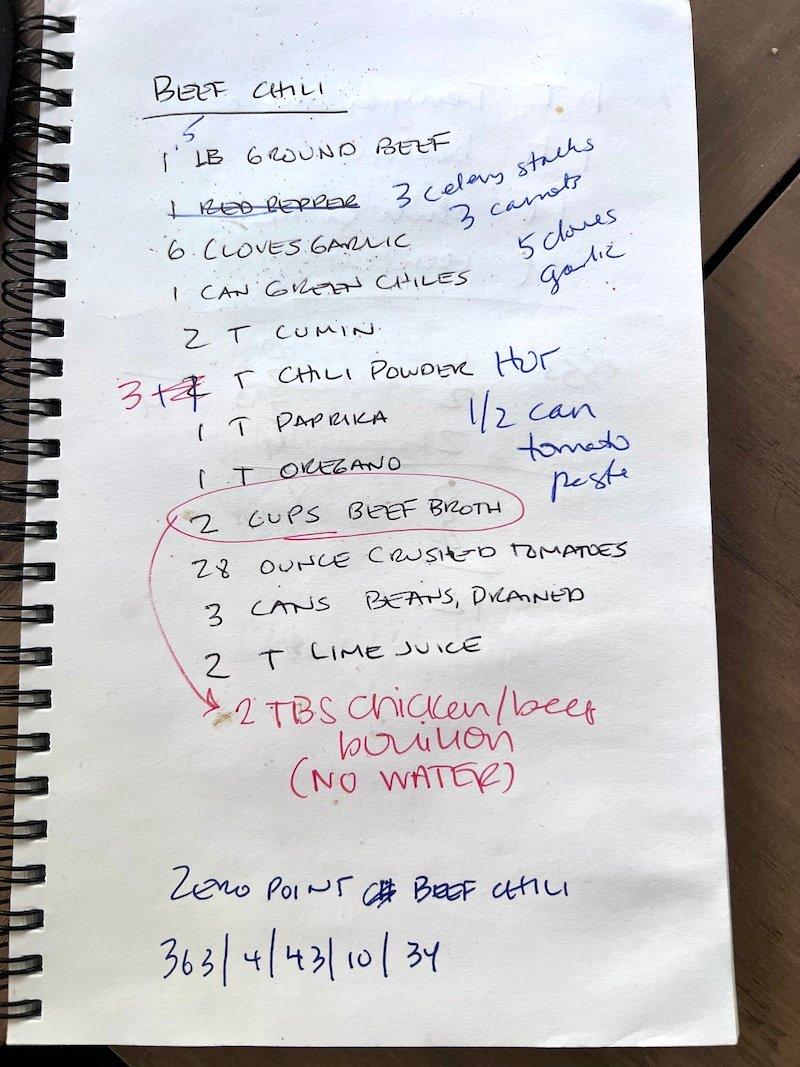 BEEF CHILI
1.5 LB GROUND BEEF
1 RED PEPPER 3 celery stalks
3 carrots
6 CLOVES GARLIC 5 cloves
garlic
1 CAN GREEN CHILES
2 T CUMIN
3 T CHILI POWDER HOT
1 T PAPRIKA 1/2 can
tomato
paste
1 T OREGANO
2 CUPS BEEF BROTH
28 OUNCE CRUSHED TOMATOES
3 CANS BEANS, DRAINED
2 T LIME JUICE
2 TBS chicken/beef
bouillon
(NO WATER)
ZERO POINT BEEF CHILI
363/4/43/10/34